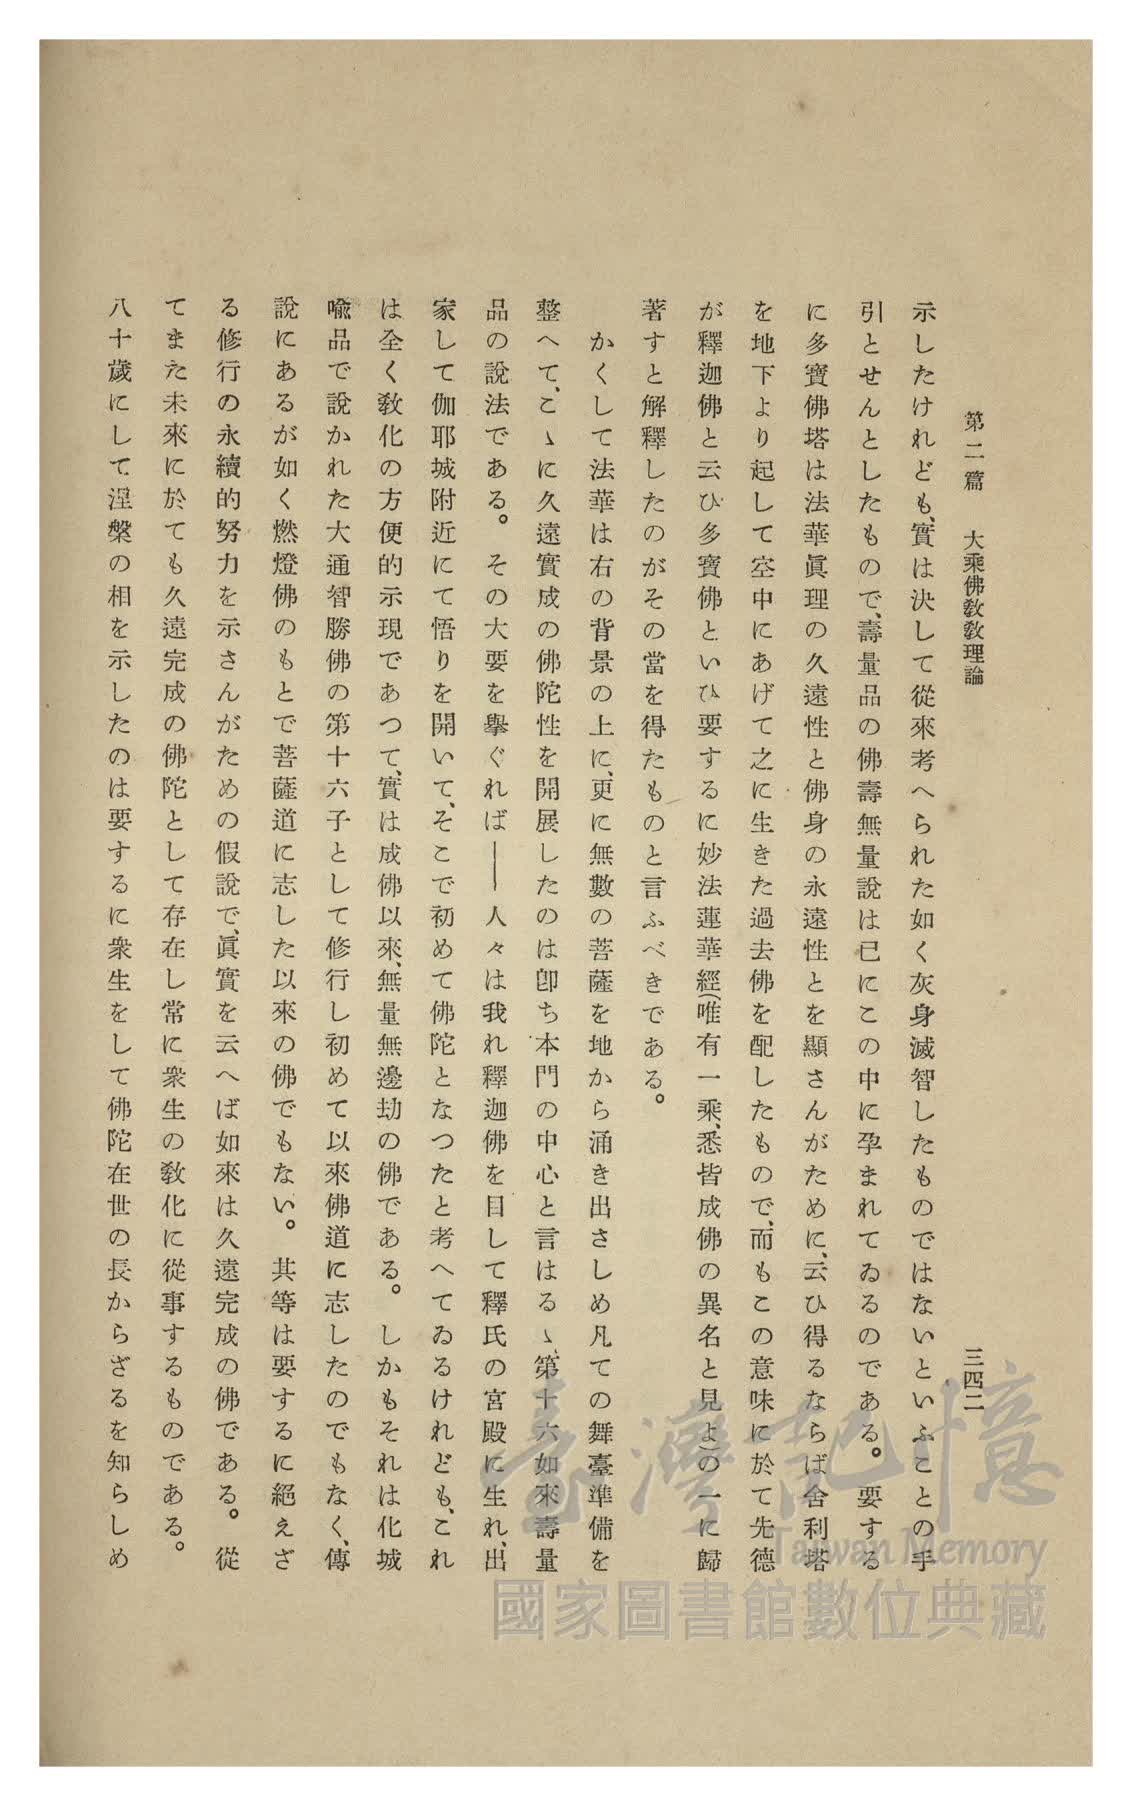 第二篇　大乘佛敎敎理論　三四二
示したけれども、實は決して從來考へられた如く灰身滅智したものではないといふことの手
引とせんとしたもので、壽量品の佛壽無量說は已にこの中に孕まれてゐるのである。要する
に多寶佛塔は法華眞理の久遠性と佛身の永遠性とを顯さんがために、云ひ得るならば舍利塔
を地下より起して空中にあげて之に生きた過去佛を配したもので、而もこの意味に於て先德
が釋迦佛と云ひ多寶佛といひ要するに妙法蓮華經(唯有一乘、悉皆成佛の異名と見よ)の一に歸
著すと解釋したのがその當を得たものと言ふべきである。
かくして法華は右の背景の上に、更に無數の菩薩を地から涌き出さしめ凡ての舞臺準備を
整へて、こゝに久遠實成の佛陀性を開展したのは卽ち本門の中心と言はるゝ、第十六如來壽量
品の說法である。その大要を擧ぐれば――人々は我れ釋迦佛を目して釋氏の宮殿に生れ、出
家して伽耶城附近にて悟りを開いて、そこで初めて佛陀となつたと考へてゐるけれども、これ
は全く敎化の方便的示現であつて、實は成佛以來、無量無邊劫の佛である。しかもそれは化城
喩品で說かれた大通智勝佛の第十六子として修行し初めて以來佛道に志したのでもなく、傳
說にあるが如く燃燈佛のもとで菩薩道に志した以來の佛でもない。其等は要するに絕えざ
る修行の永續的努力を示さんがための假說で、眞實を云へば如來は久遠完成の佛である。從
てまた未來に於ても久遠完成の佛陀として存在し常に衆生の敎化に從事するものである。
八十歲にして涅槃の相を示したのは要するに衆生をして佛陀在世の長からざるを知らしめ
臺灣記憶
Taiwan Memory
國家圖書館數位典藏